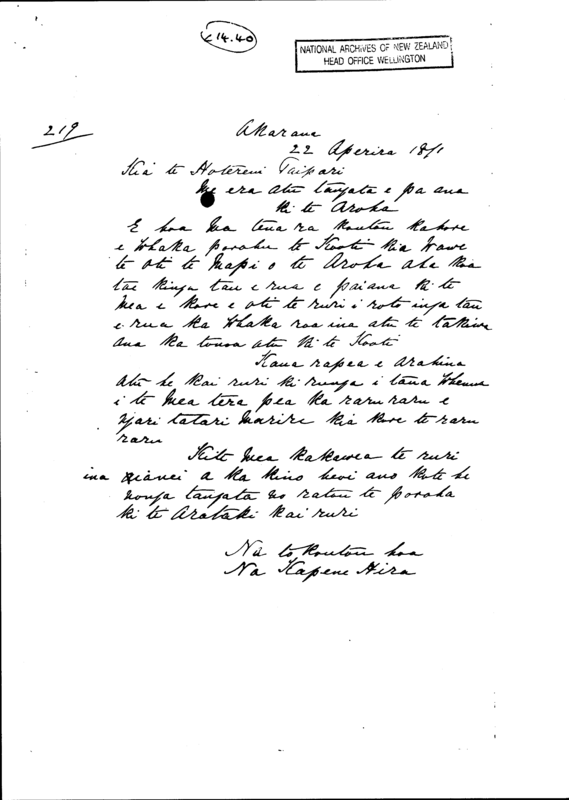 £14.40
NATIONAL ARCHIVES OF NEW ZEALAND
HEAD OFFICE WELLINGTON
219
Akarana
22 Aperira 1871
Kia te Hotereni Taipari
Me era atu tangata e pa ana
ki te Aroha
E hoa ma tena ra koutou kahore
e Whaka poroha te Kooti kia wawe
te oti te Mapi o te Aroha aha koa
tae kinga tau e rua e paiana ki te
Mea e kore e oti te ruri i roto inga tau
e rua ka Whaka roa ina atu te takiwa
ana ka tonoa atu ki te Kooti
Kaua rapea e Arahina
atu he kai ruri ki runga i taua Whenua
i te Mea tera pea ka raru raru e
ngari tatari marire kia kore te raru
raru
Kite Mea kakawea te ruri
ina aianei a ka kino hevi ano kote he
nonga tangata no ratou te poroha
ki te Arataki kai ruri
Na to Koutou hoa
Na Kapene Hira